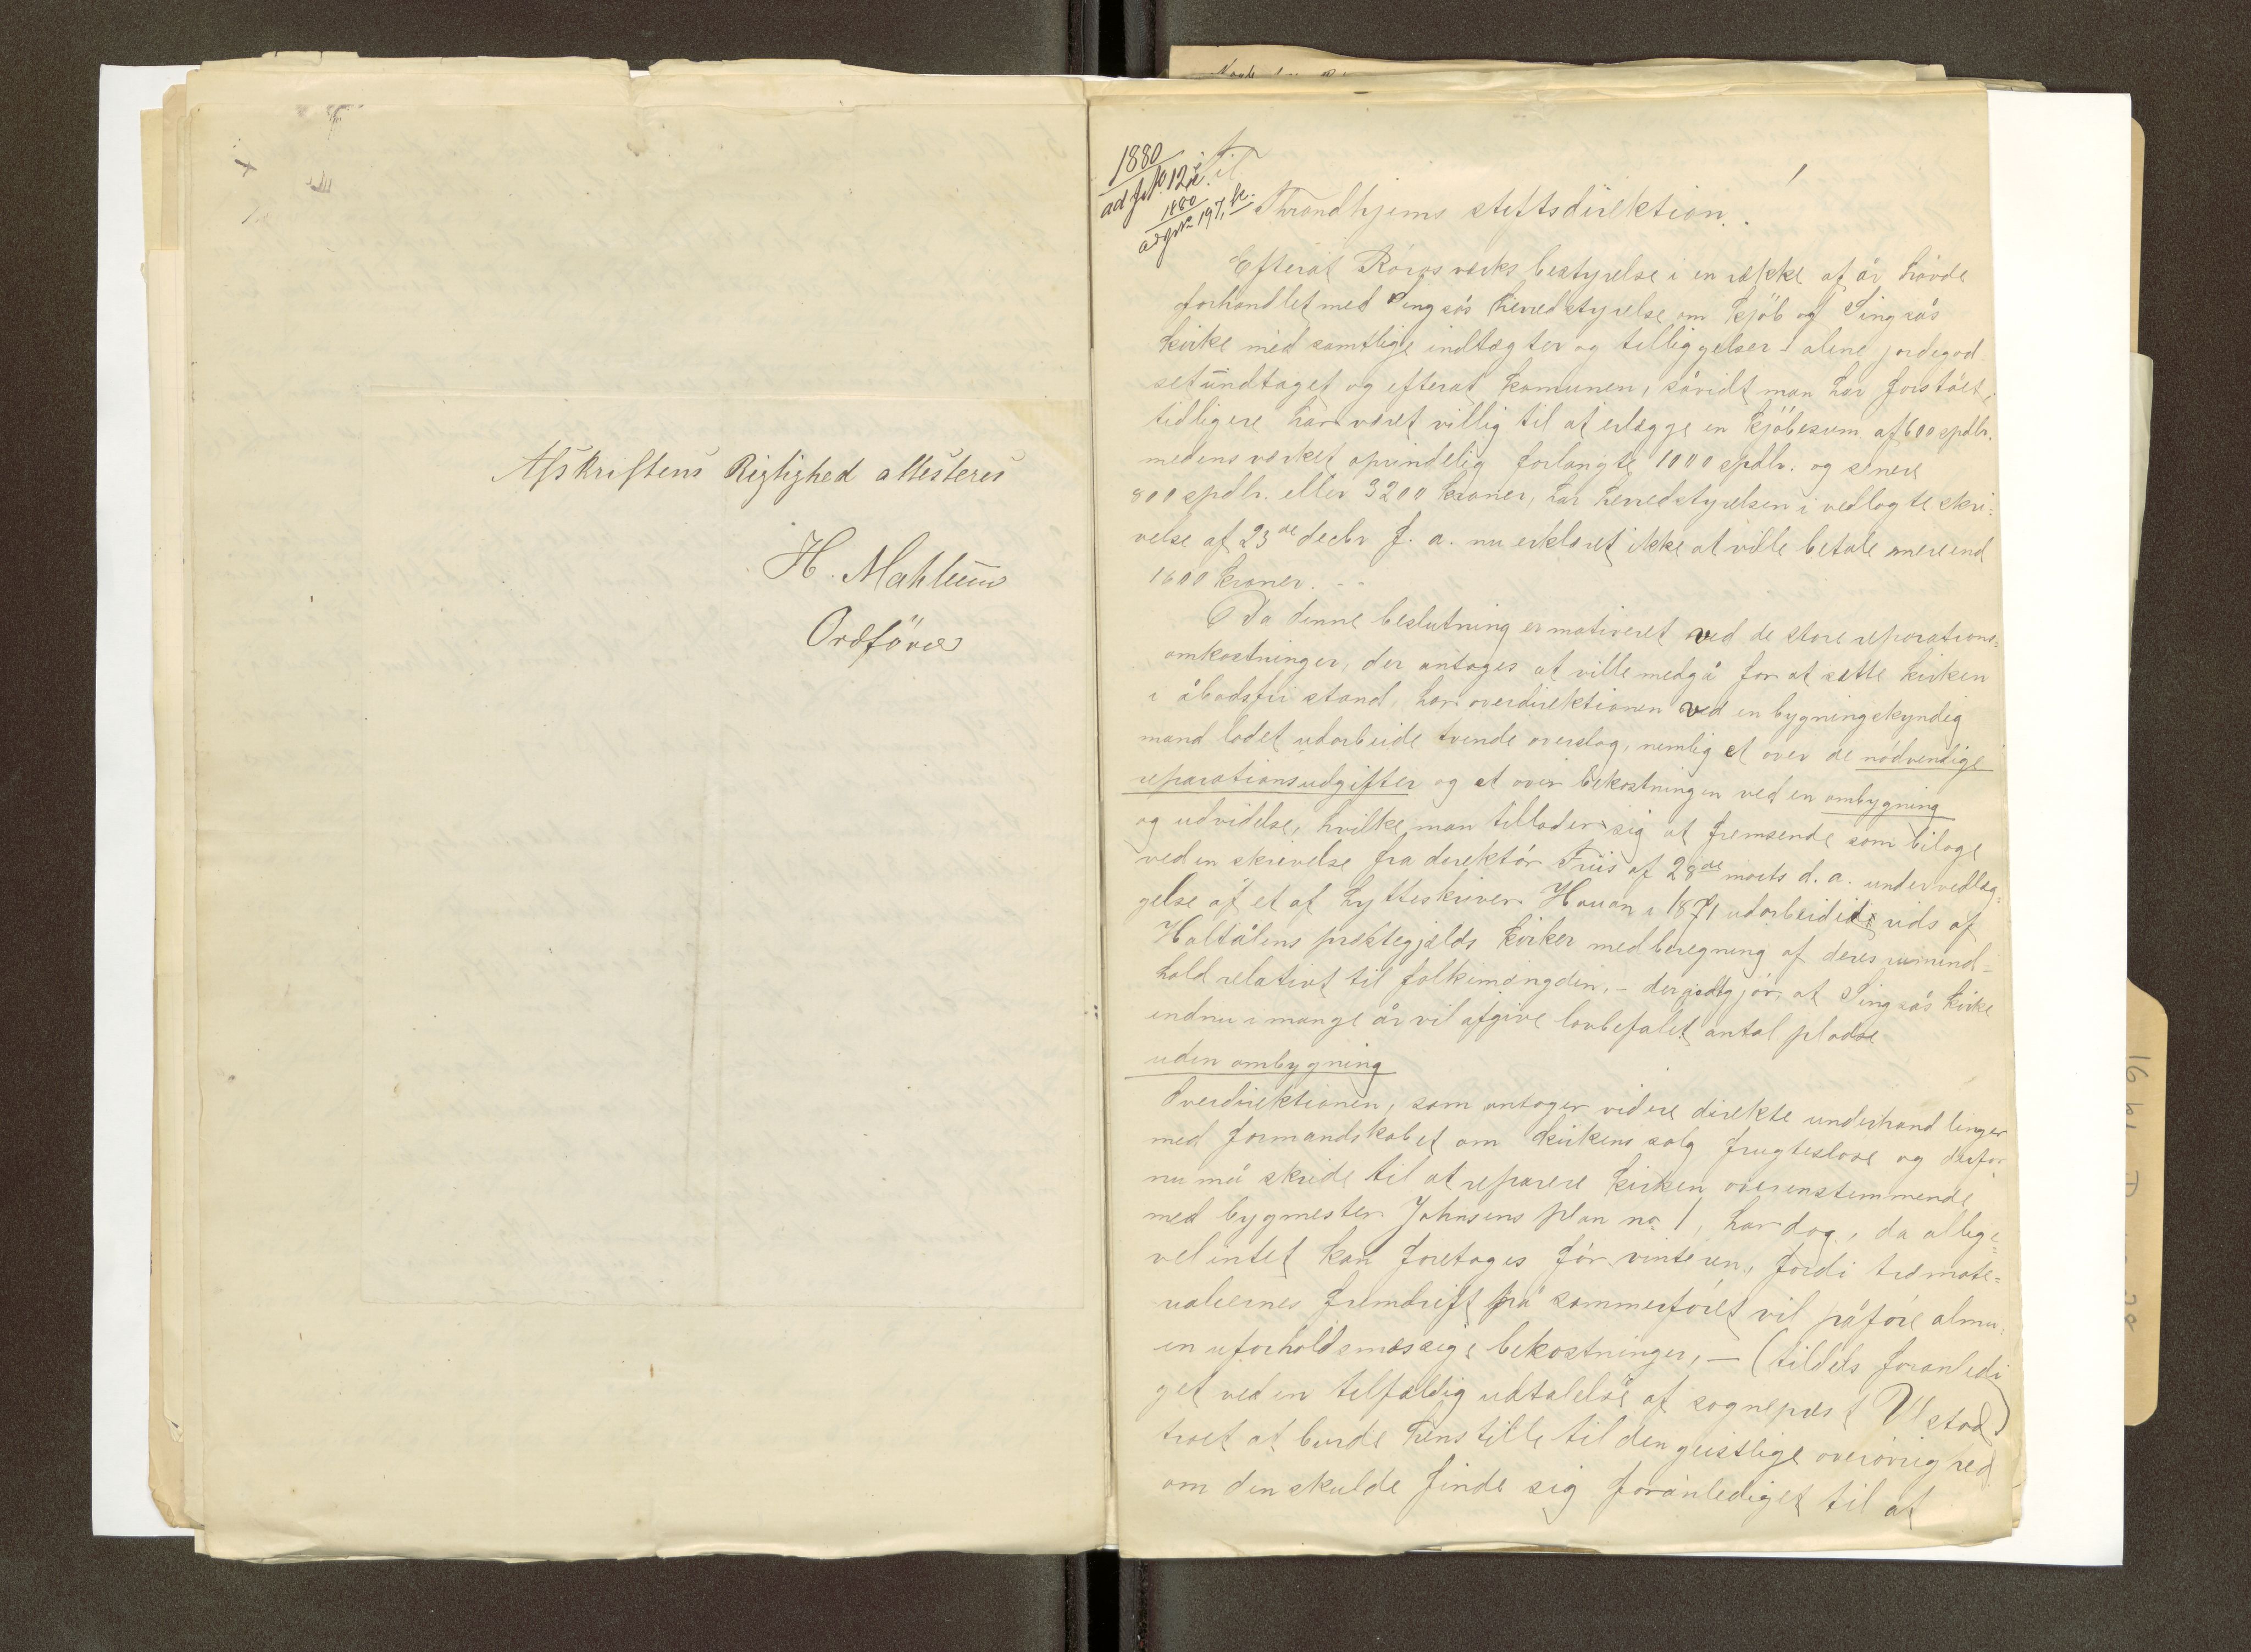 Afskriftens Rigtighed attesteres
H. Mahlum
Ordförer
1880
ad Jn° 12 e.
1880
ad Jn° 197, be.
Til
Throndhjems stiftsdirektion.
Efterat Röros værks bestyrelse i en række af år havde
forhandlet med Singsås herredstyrelse om kjöb og Singsås
kirke med samtlige indtægter og tilliggelser – alene jordegod
set undtaget og efterat komunen, såvidt man har forstået,
tidligere har været villig til at erlægge en kjöbesum af 600 spdlr.
medens værket oprindelig forlangte 1000 spdlr. og senere
800 spdlr. eller 3200 kroner, har herredstyrelsen i vedlagte skri=
velse af 23de decbr f. a. nu erklæret ikke at ville betale mere end
1600 kroner. --
Da denne beslutning er motiveret ved de store reparations=
omkostninger, der antages at ville medgå for at sætte kirken
i åbodsfri stand, har overdirektionen ved en bygningskyndig
mand ladet udarbeide tvende overslag, nemlig et over de nödvendige
reparationsudgifter og et over bekostningen ved en ombygning
og udvidelse, hvilke man tillader sig at fremsende som bilage
ved en skrivelse fra direktör Friis af 28de marts d. a. under vedlæg=
gelse af et af hytteskriver Hauan i 1871 udarbeidet rids af
Holtålens præstegjælds kirker med beregning af deres rumind=
hold relativt til folkemængden, – der godtgjör, at Singsås kirke
endnu i mange år vil afgive lovbefalet antal pladse
uden ombygning
Overdirektionen, som antager videre direkte underhandlinger
med formandskabet om kirkens salg frugteslöse og derfor
nu må skride til at reparere kirken overenstemmende
med bygmester Johnsens plan no. 1, har dog, da allige=
vel intet kan foretages för vinteren, fordi træmate=
rialiernes fremdrift på sommerföret vil påföre almu=
en uforholdsmæssige bekostninger, – (tildels foranledi
get ved en tilfældig udtalelse af sognepræst Ulstad)
troet at burde henstille til den geistlige overövrighed
om den skulde finde sig foranlediget til at